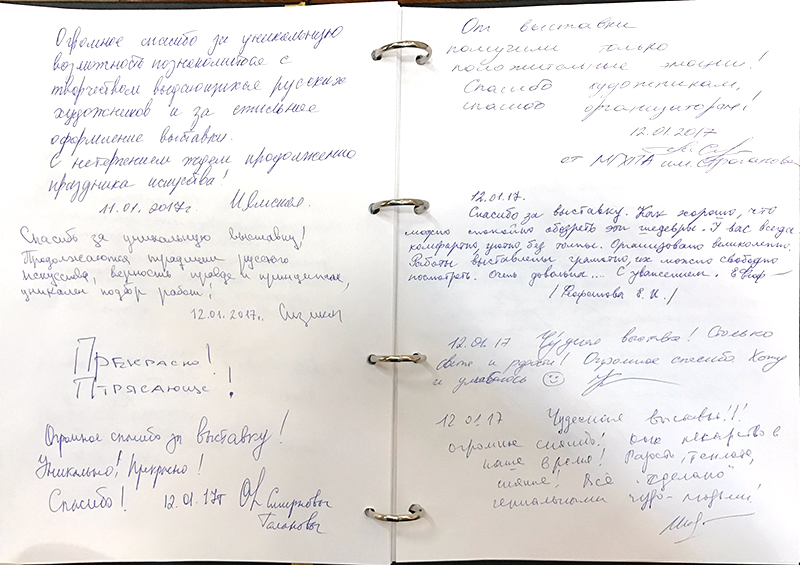 Огромное спасибо за уникальную
возможность познакомиться с
творчеством выдающихся русских
художников и за стильное
оформление выставки.
С нетерпением ждём продолжения
праздника искусства!
11.01.2017г.
Спасибо за уникальную выставку!
Продолжаются традиции русского
искусства, верность правде и принципам,
уникален подбор работ!
12.01.2017г.
Прекрасно!
Птрясающе!
Огромное спасибо за выставку!
Уникально! Прекрасно!
Спасибо! 12.01.17г Смирновы
От выставки
получили только
положительные эмоции!
Спасибо художникам,
спасибо организаторам!
12.01.2017
от МГХПА им. Строганова
12.01.17.
Спасибо за выставку. Как хорошо, что
можно спокойно обозреть эти шедевры. У вас всегда
комфортно уютно без толпы. Организовано великолепно.
Работы выставлены грамотно, их можно свободно
посмотреть. Очень довольна.... С уважением.
12.01.17 Чудная выставка! Столько
света и радости! Огромное спасибо. Хожу
и улыбаюсь
12 01 17 Чудесная выставка!!!
огромные спасибо! Она лекарство в
наше время! Радость, тепло,
сияние! Всё "сделано"
гениальными чудо-людьми!